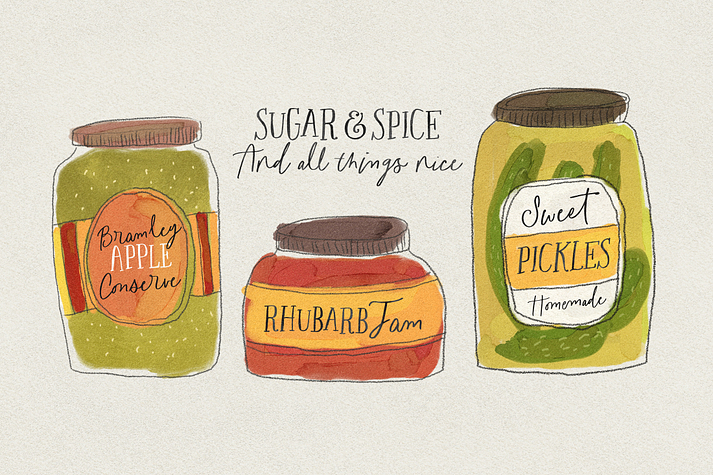 SUGAR & SPICE
And all things nice
Bramley
APPLE
Conserve
RHUBARB Jam
Sweet
PICKLES
Homemade